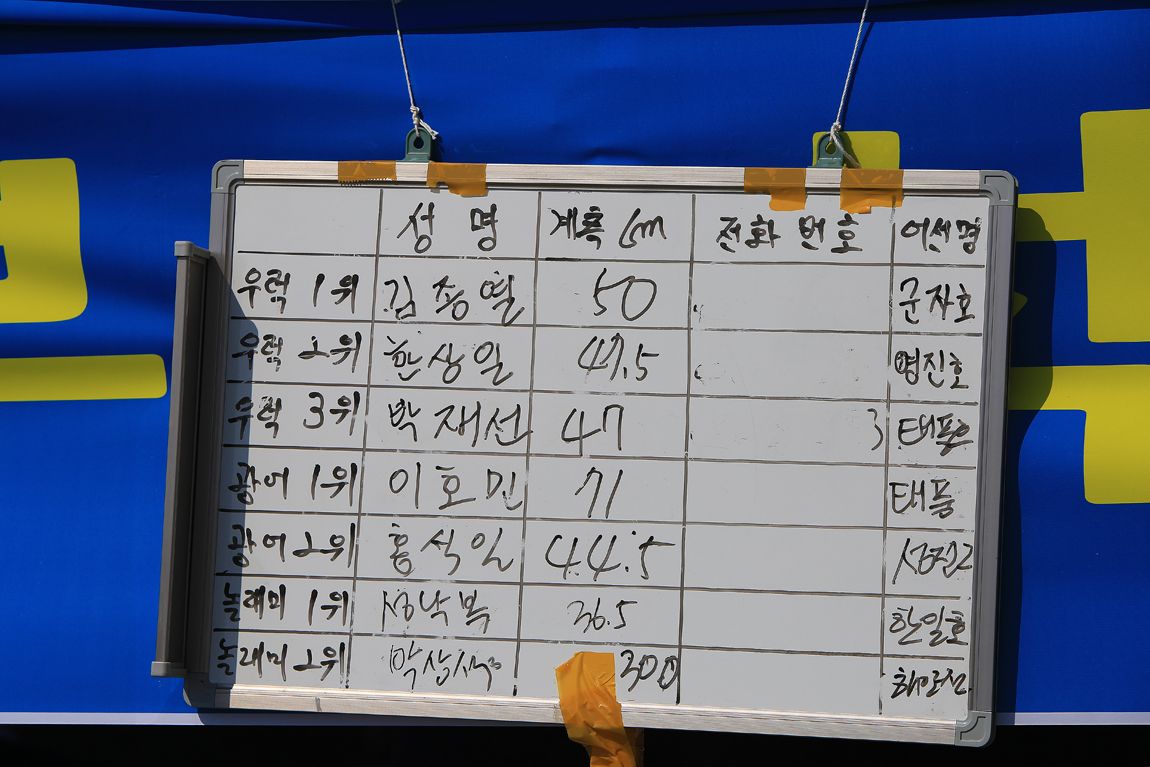 성 명 계측 Cm 전화 번호 어선명
우럭 1위 김종열 50 군자호
우럭 2위 한상일 47.5 명진호
우럭 3위 박재선 47 3
광어 1위 이호민 71 태풍
광어 2위 홍석일 44.5
놀래미 1위 성낙복 36.5 한일호
놀래미 2위 300